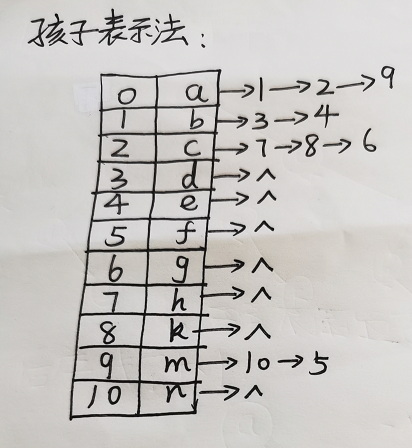 孩子表示法:
0 a →1→2→9
1 b →3→4
2 c →7→8→6
3 d →∧
4 e →∧
5 f →∧
6 g →∧
7 h →∧
8 k →∧
9 m →10→5
10 n →∧